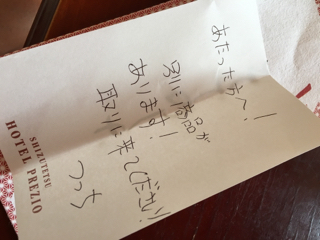 あたった方へ!
別に商品が
あります!
取りに来てください!!
つっち
SHIZUTETSU
HOTEL PREZIO